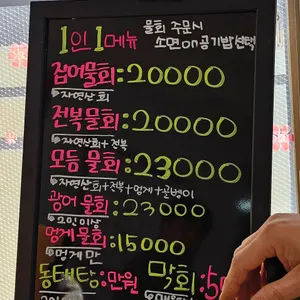 물회 주문시
1인 1메뉴 소면 or 공기밥 선택
잡어물회:20000
자연산회
전복물회:20000
자연산회+전복
모듬 물회:23000
자연산회+전복+멍게+골뱅이
광어 물회:23000
2인 이상
멍게 물회:15000
멍게만
동태탕:만원 막회:5